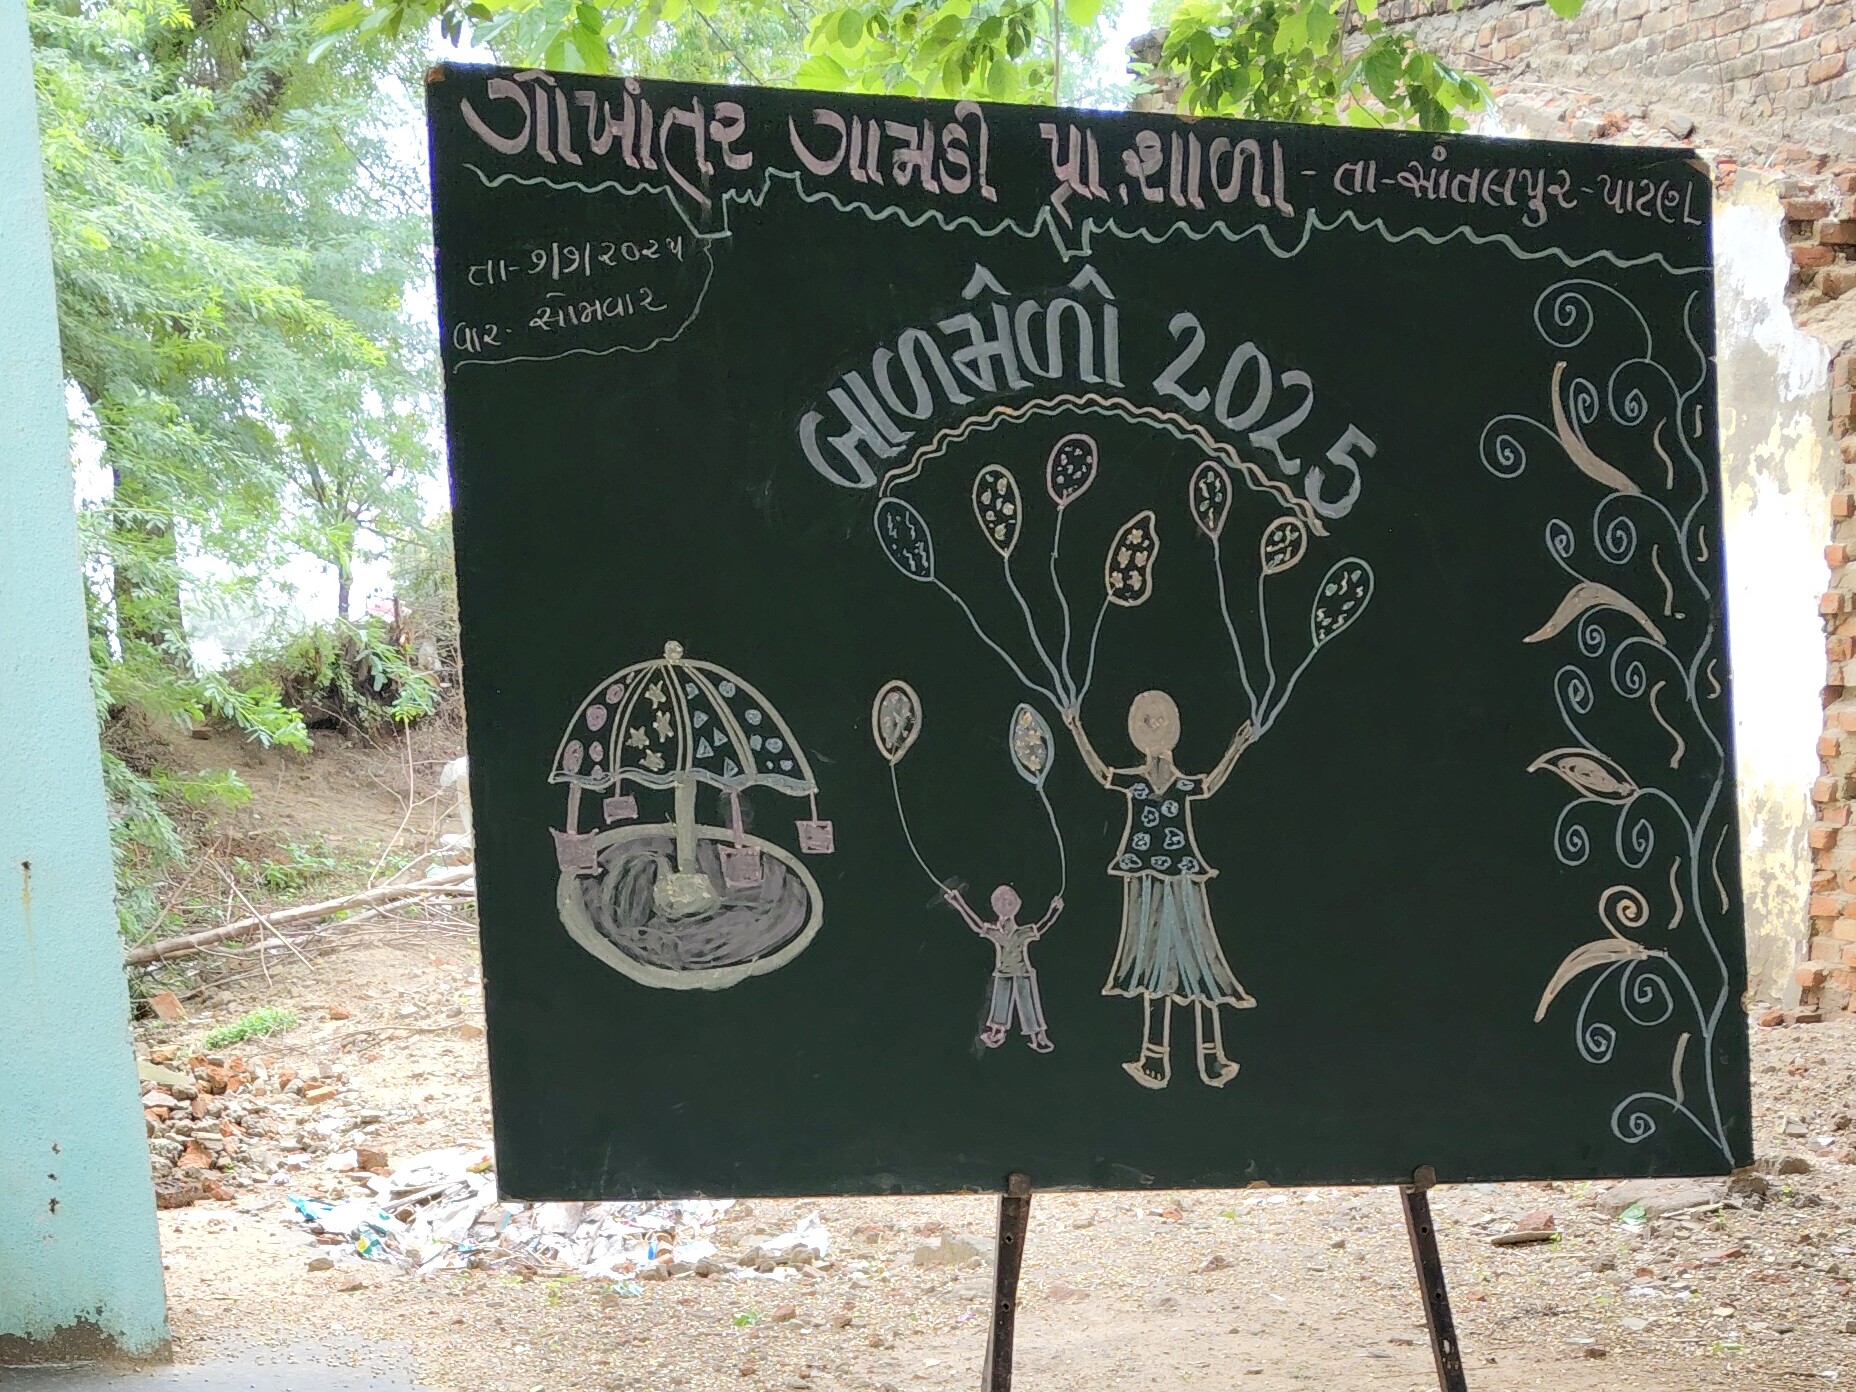 ગોખાંતર ગામડી પ્રા.શાળા - તા-સાંતલપુર-પાટણ
તા-૭/૭/૨૦૨૫
વાર- સોમવાર
બાળમેળો 2025